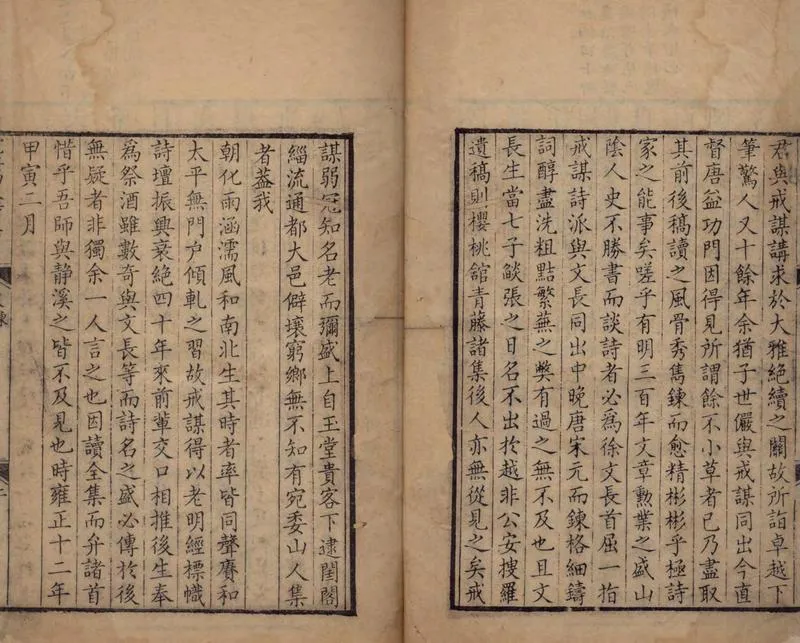 君與戒謀講求於大雅絕續之關故所詣卓越下
筆驚人又十餘年余猶子世儼與戒謀同出今直
督唐益功門因得見所謂餘不小草者已乃盡取
其前後稿讀之風骨秀雋鍊而愈精彬彬乎極詩
家之能事矣嗟乎有明三百年文章勲業之盛山
陰人史不勝書而談詩者必爲徐文長首屈一指
戒謀詩派與文長同出中晚唐宋元而鍊格細鑄
詞醇盡洗粗點繁蕪之獘有過之無不及也且文
長生當七子燄張之日名不出於越非公安搜羅
遺稿則櫻桃舘青藤諸集後人亦無從見之矣戒
謀弱冠知名老而彌盛上自玉堂貴客下逮閨閤
緇流通都大邑僻壤窮鄉無不知有宛委山人集
者葢我
朝化雨涵濡風和南北生其時者率皆同聲賡和
太平無門户傾軋之習故戒謀得以老明經標幟
詩壇振興衰絕四十年來前輩交口相推後生奉
爲祭酒雖數奇與文長等而詩名之盛必傳於後
無疑者非獨余一人言之也因讀全集而弁諸首
惜乎吾師與静溪之皆不及見也時雍正十二年
甲寅二月